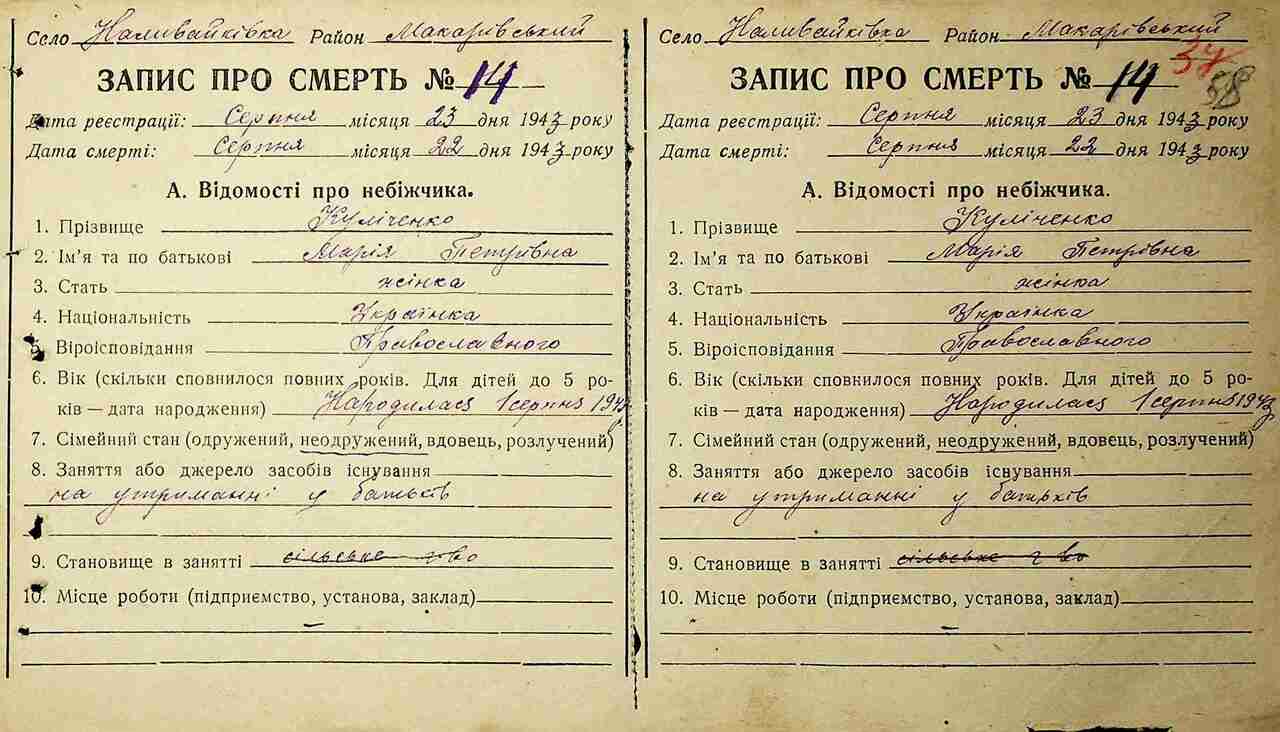 Село Наливайківка Район Макарівський
ЗАПИС ПРО СМЕРТЬ № 14
Дата реєстрації: Серпня місяця 23 дня 1943 року
Дата смерті: Серпня місяця 22 дня 1943 року
А. Відомості про небіжчика.
1. Прізвище Куліченко
2. Ім'я та по батькові Марія Петрівна
3. Стать жінка
4. Національність Українка
5. Віроісповідання Православного
6. Вік (скільки сповнилося повних років. Для дітей до 5 ро-
ків — дата народження) Народилась 1 серпня 1943
7. Сімейний стан (одружений, неодружений, вдовець, розлучений)
8. Заняття або джерело засобів існування
на утриманні у батьків
9. Становище в занятті сільське г-во
10. Місце роботи (підприємство, установа, заклад)
–
Село Наливайківка Район Макарівський
37
38
ЗАПИС ПРО СМЕРТЬ № 14
Дата реєстрації: Серпня місяця 23 дня 1943 року
Дата смерті: Серпня місяця 22 дня 1943 року
А. Відомості про небіжчика.
1. Прізвище Куліченко
2. Ім'я та по батькові Марія Петрівна
3. Стать жінка
4. Національність Українка
5. Віроісповідання Православного
6. Вік (скільки сповнилося повних років. Для дітей до 5 ро-
ків — дата народження) Народилась 1 серпня 1943
7. Сімейний стан (одружений, неодружений, вдовець, розлучений)
8. Заняття або джерело засобів існування
на утриманні у батьків
9. Становище в занятті сільське г-во
10. Місце роботи (підприємство, установа, заклад)
–